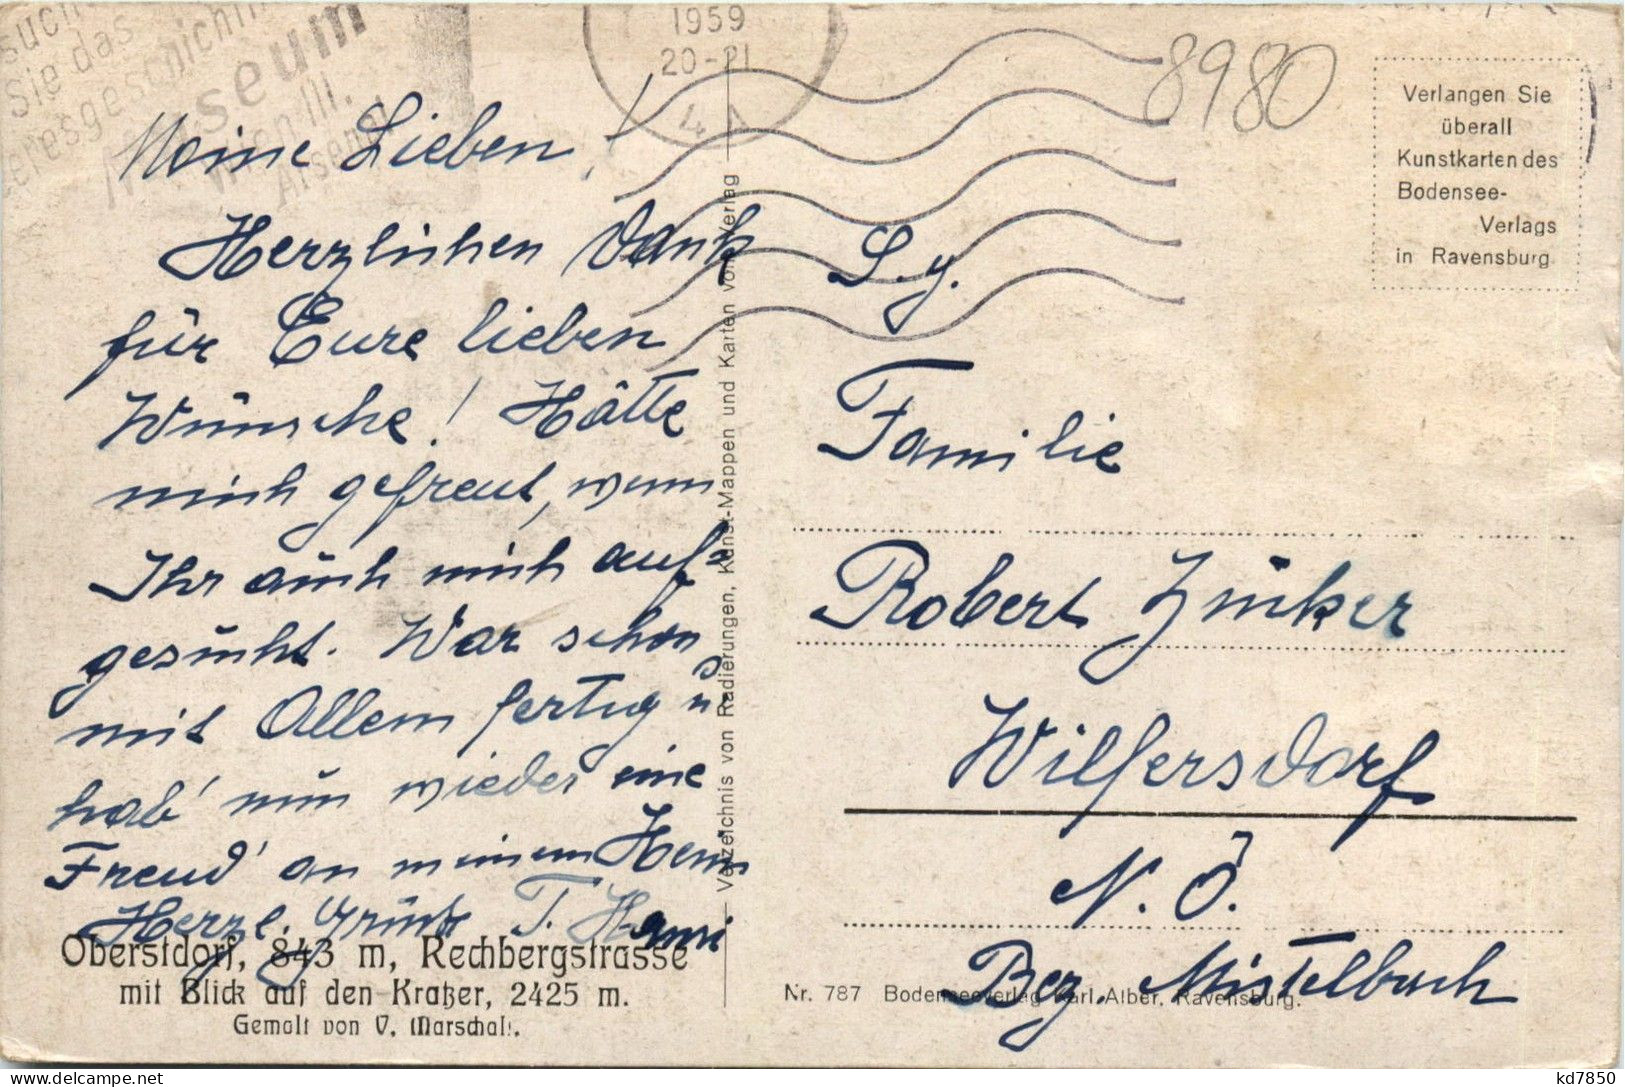 Sie das
Heeresgeschichtl
Museum
Wien III.
Arsenal
1959
20-21
8980
Verlangen Sie
überall
Kunstkarten des
Bodensee-
Verlags
in Ravensburg
Meine Lieben!
Herzlichen Dank
für Eure lieben
Wünsche! Hätte
mich gefreut, wenn
Ihr auch mich auf-
gesucht. War schon
mit Allem fertig u.
hab' nun wieder eine
Freud' an meinem Heim
Herzl. Grüße T. Hansi
Oberstdorf, 843 m, Rechbergstrasse
mit Blick auf den Kratzer, 2425 m.
Gemalt von V. Marschall.
Verzeichnis von Radierungen, Kunst-Mappen und Karten vom Verlag
S. g.
Familie
Robert Zucker
Wilfersdorf
N. Ö.
Bez. Mistelbach
Nr. 787 Bodenseeverlag Karl Alber, Ravensburg.
kd7850